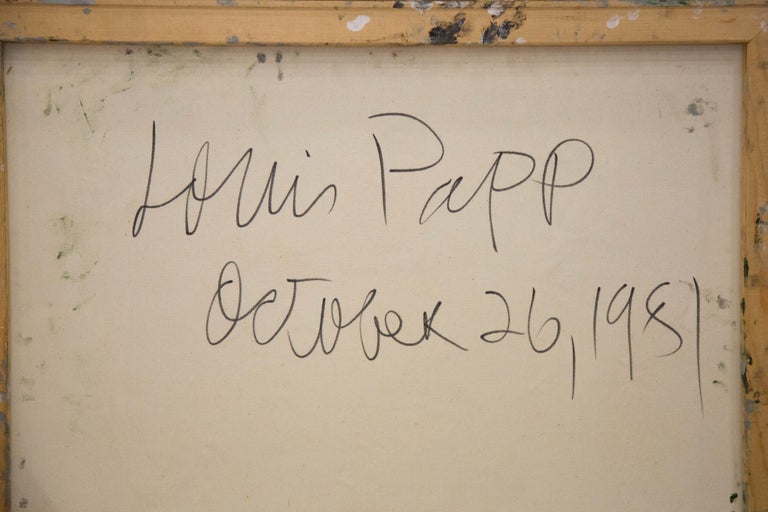 Louis Papp
October 26, 1981